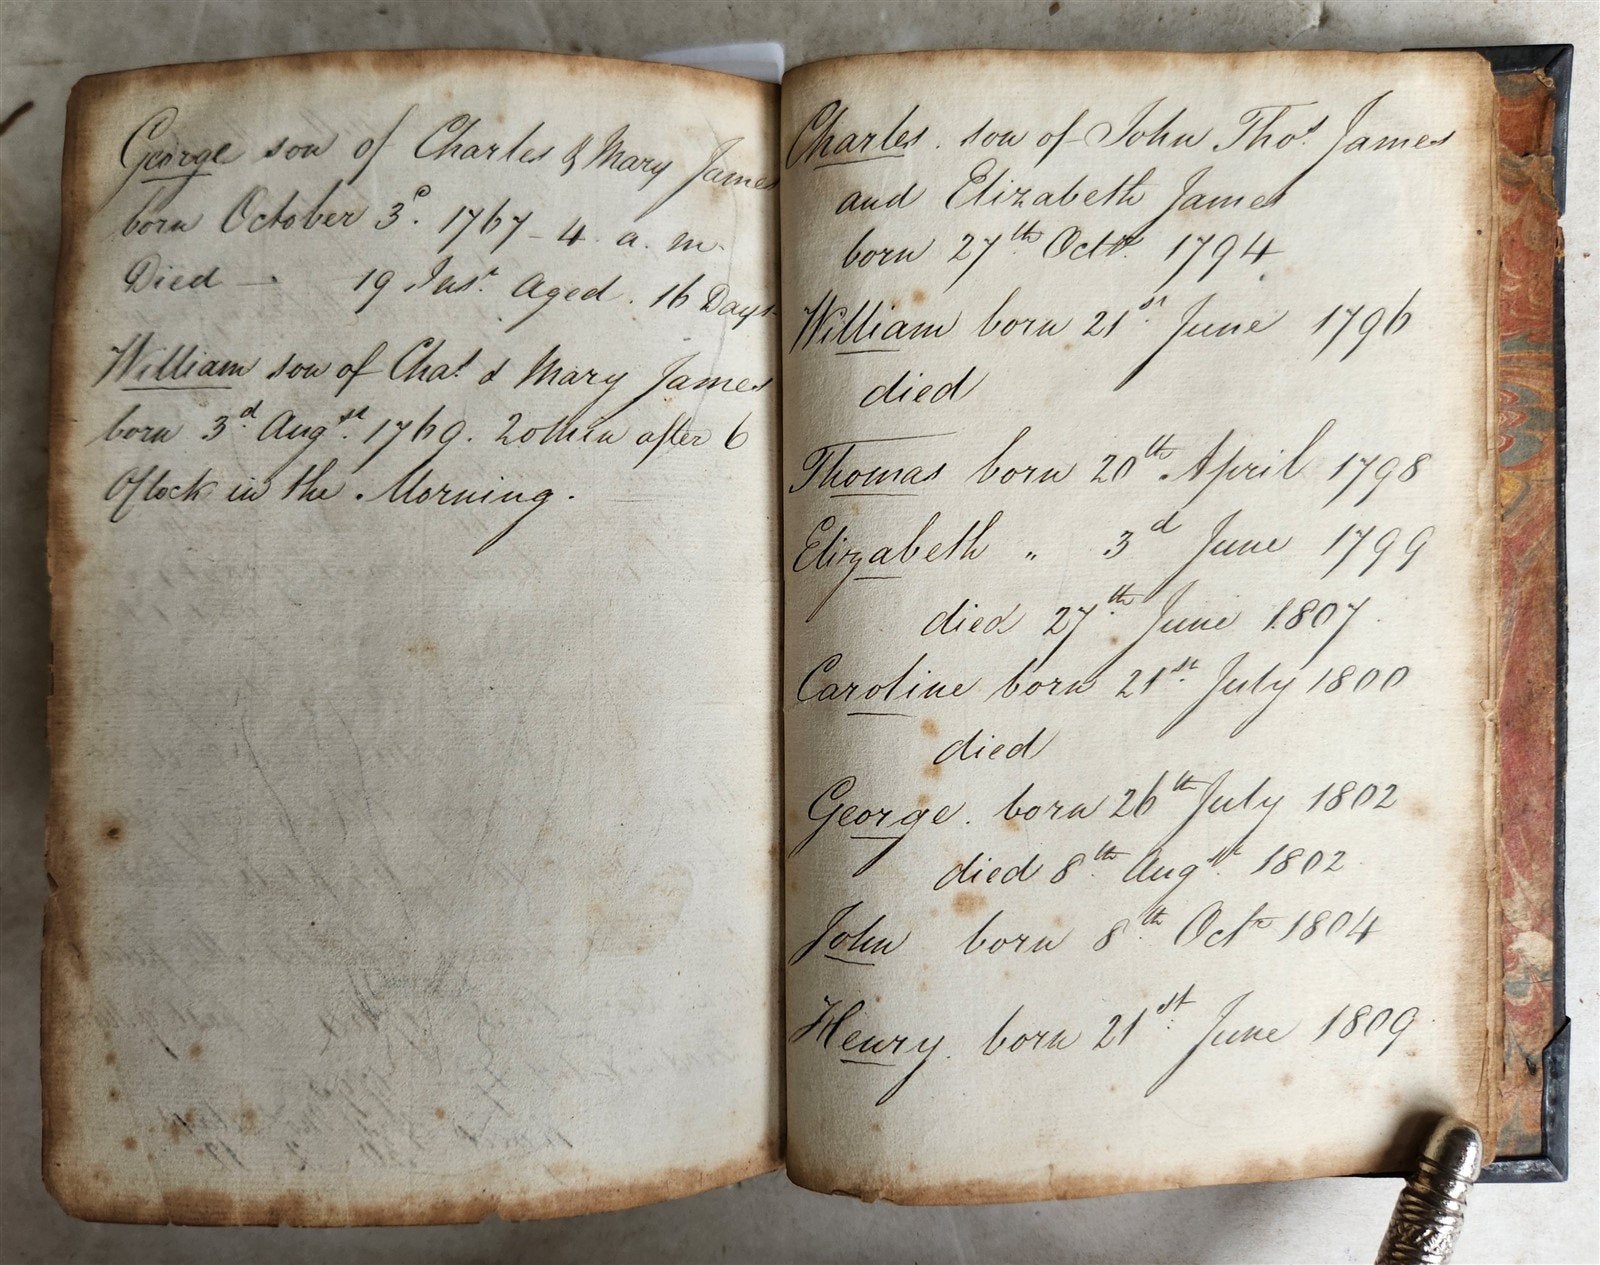 George son of Charles & Mary James
born October 3d. 1767 - 4. a. m.
Died — 19 Inst. Aged. 16 Days
William son of Chas. & Mary James
born 3d. Augst. 1769. 20 Min after 6
O'Clock in the Morning.
Charles. son of John Thos. James
and Elizabeth James
born 27th Octr. 1794
William born 21st. June 1796
died
Thomas born 20th April 1798
Elizabeth " 3d June 1799
died 27th. June 1807.
Caroline born 21st. July 1800
died
George. born 26th July 1802
died 8th. Augst. 1802
John born 8th. Octr 1804
Henry. born 21st. June 1809